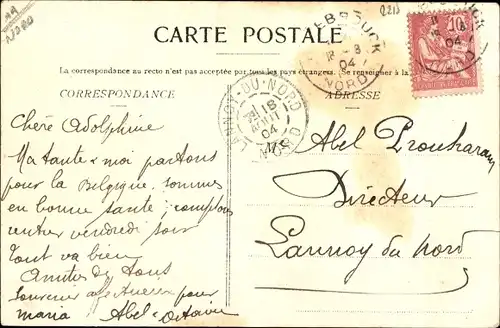 2213
CARTE POSTALE
La correspondance au recto n'est pas acceptée par tous les pays étrangers. Se renseigner à la
CORRESPONDANCE
ADRESSE
EBBROUCK
18 - 8
04
NORD
10
LANNOY-DU-NORD
18
AOUT
04
Chère Adolphine
Ma tante & moi partons
pour la Belgique, sommes
en bonne santé, comptons
rentrer vendredi soir
Tout va bien
Amitiés de tous
Souvenir affectueux pour
maria Abel - Octavie
Abel
Directeur
Lannoy du Nord